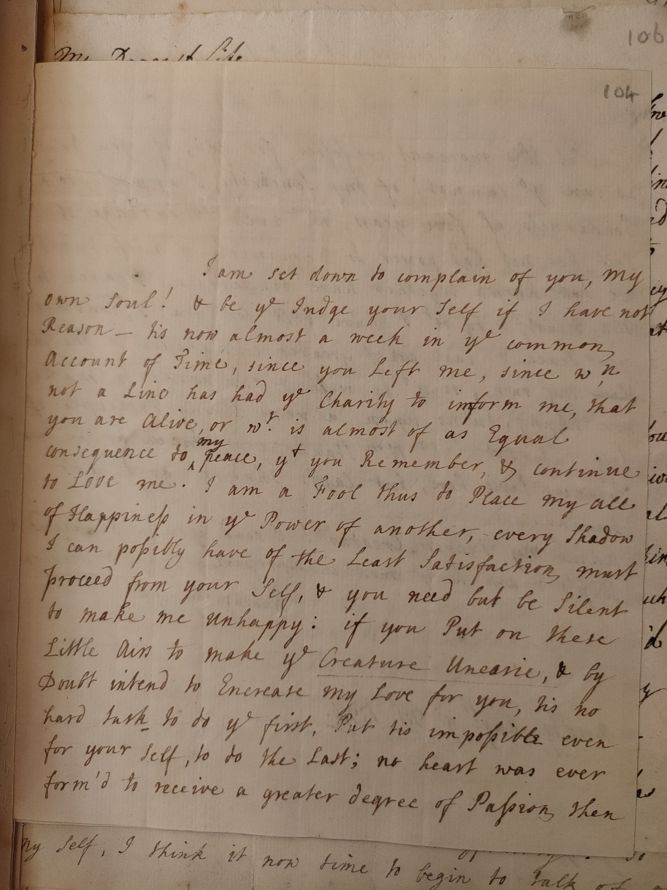 106
My Dearest Life
104
I am set down to complain of you, my
own soul! & be yᵉ Judge your Self if I have not
Reason — tis now almost a week in yᵉ common
Account of Time, since you Left me, since wⁿ
not a Line has had yᵉ Charity to inform me, that
you are Alive, or wᵗ. is almost of as Equal
my
consequence to ‸ peace, yᵗ you Remember, & continue
to Love me. I am a Fool thus to Place my all
of Happiness in yᵉ Power of another, every Shadow
I can possibly have of the Least Satisfaction, must
proceed from your Self, & you need but be Silent
to make me unhappy: if you Put on these
Little Airs to make yᵉ Creature Uneasie, & by
Doubt intend to Encrease my Love for you, tis no
hard task to do yᵉ first, Put tis impossible even
for your Self, to do the Last; no heart was ever
form'd to receive a greater degree of Passion, then
my Self, I think it now time to begin to talk of